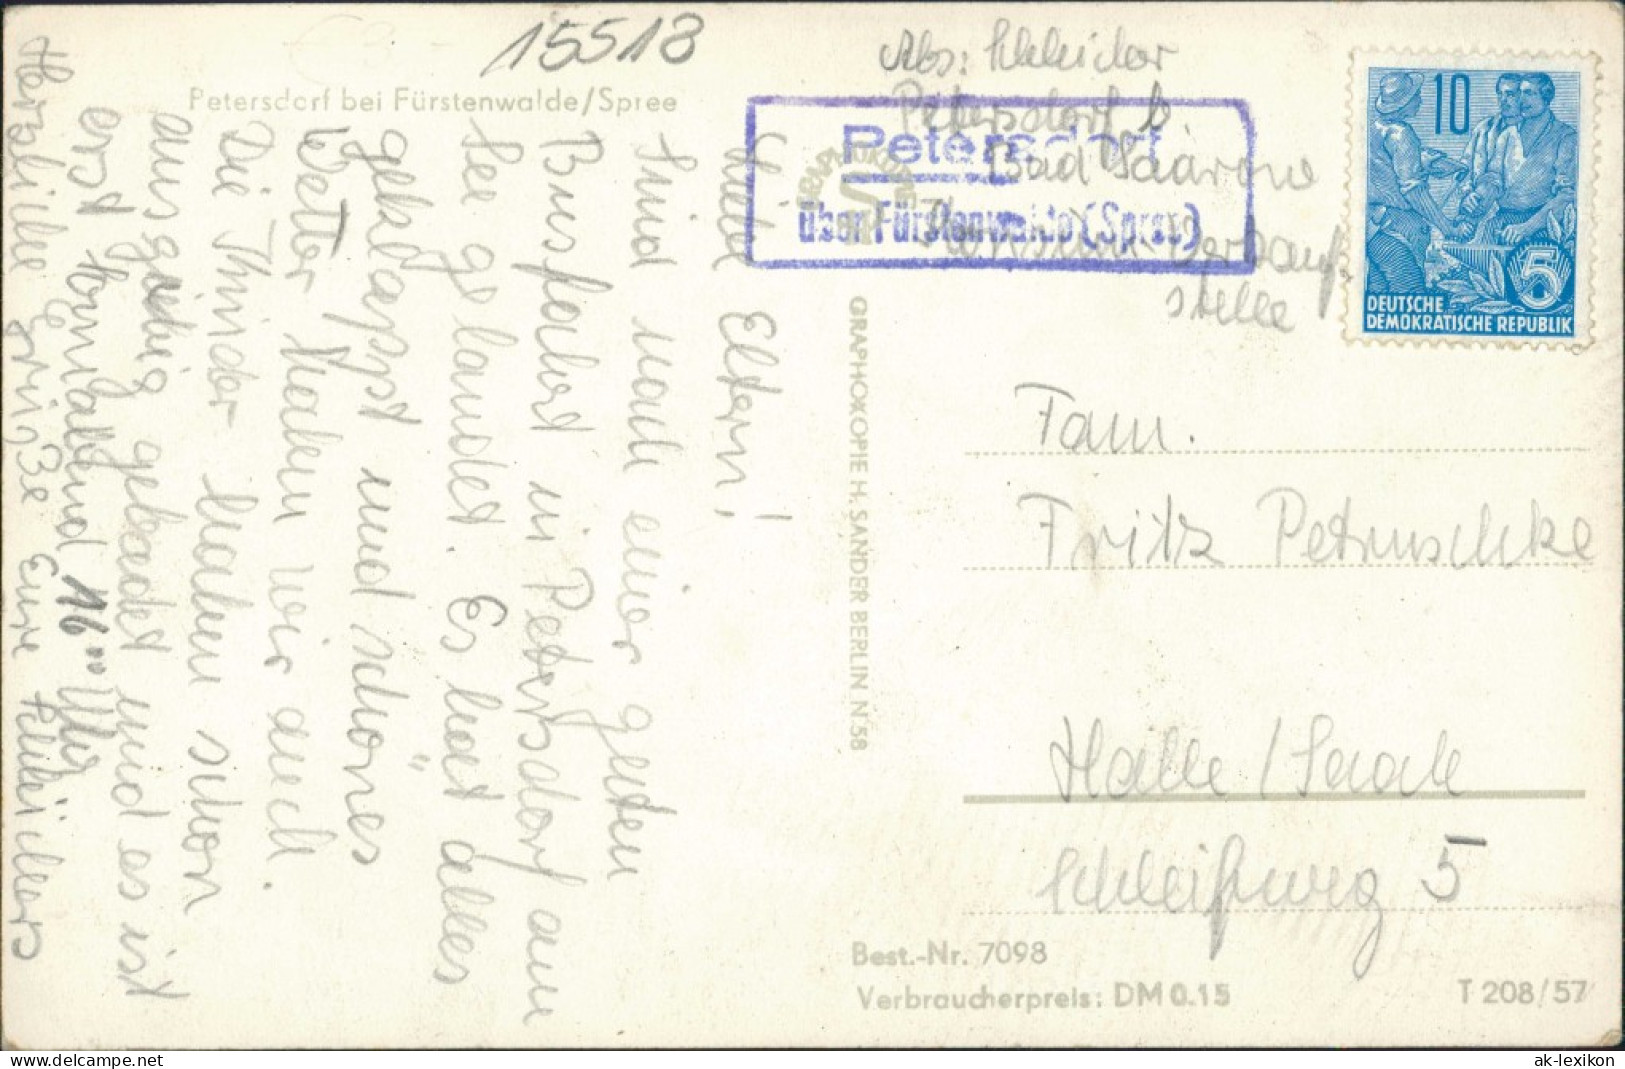 15518
Petersdorf bei Fürstenwalde/Spree
Liebe Eltern!
Sind nach einer guten
Busfahrt in Petersdorf am
See gelandet. Es hat alles
geklappt und schönes
Wetter haben wir auch.
Die Kinder haben schon
ausgiebig gebadet und es ist
erst Vormittag 16°° Uhr
Herzliche Grüße Eure Schleichers
Abs: Schleicher
Petersdorf b
Bad Saarow
Verkauf
stelle
Petersdorf
über Fürstenwalde (Spree)
10
5
DEUTSCHE
DEMOKRATISCHE REPUBLIK
GRAPHOKOPIE H. SANDER BERLIN N 58
Fam.
Fritz Petruschke
Halle/Saale
Schleifweg 5
Best.-Nr. 7098
Verbraucherpreis: DM 0.15
T 208/57
ak-ansichtskarten.de / delcampe.net
ak-lexikon